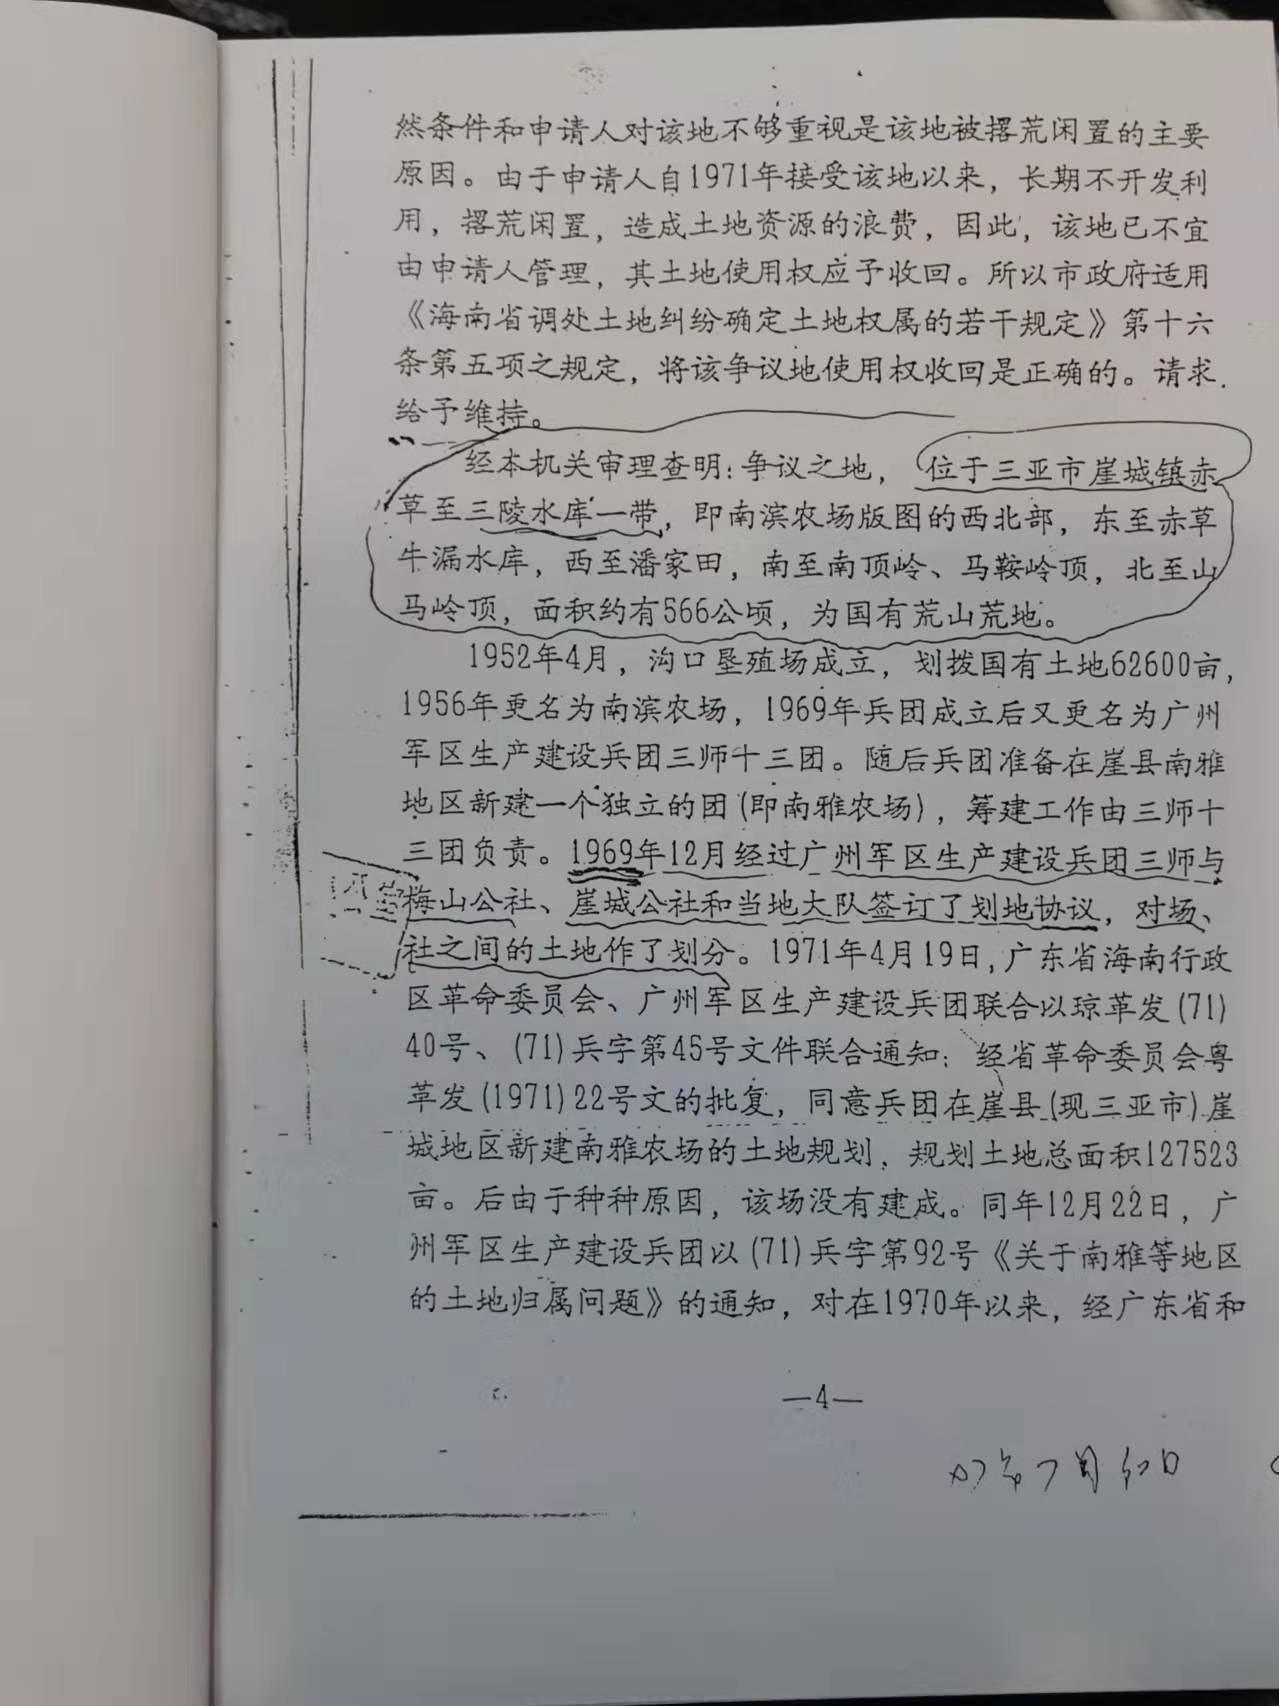 然条件和申请人对该地不够重视是该地被撂荒闲置的主要
原因。由于申请人自1971年接受该地以来，长期不开发利
用，撂荒闲置，造成土地资源的浪费，因此，该地已不宜
由申请人管理，其土地使用权应予收回。所以市政府适用
《海南省调处土地纠纷确定土地权属的若干规定》第十六
条第五项之规定，将该争议地使用权收回是正确的。请求
给予维持。
经本机关审理查明：争议之地，位于三亚市崖城镇赤
草至三陵水库一带，即南滨农场版图的西北部，东至赤草
牛漏水库，西至潘家田，南至南顶岭、马鞍岭顶，北至山
马岭顶，面积约有566公顷，为国有荒山荒地。
1952年4月，沟口垦殖场成立，划拨国有土地62600亩，
1956年更名为南滨农场，1969年兵团成立后又更名为广州
军区生产建设兵团三师十三团。随后兵团准备在崖县南雅
地区新建一个独立的团(即南雅农场)，筹建工作由三师十
三团负责。1969年12月经过广州军区生产建设兵团三师与
梅山公社、崖城公社和当地大队签订了划地协议，对场、
社之间的土地作了划分。1971年4月19日，广东省海南行政
区革命委员会、广州军区生产建设兵团联合以琼革发(71)
40号、(71)兵字第45号文件联合通知：经省革命委员会粤
革发(1971)22号文的批复，同意兵团在崖县(现三亚市)崖
城地区新建南雅农场的土地规划，规划土地总面积127523
亩。后由于种种原因，该场没有建成。同年12月22日，广
州军区生产建设兵团以(71)兵字第92号《关于南雅等地区
的土地归属问题》的通知，对在1970年以来，经广东省和
—4—